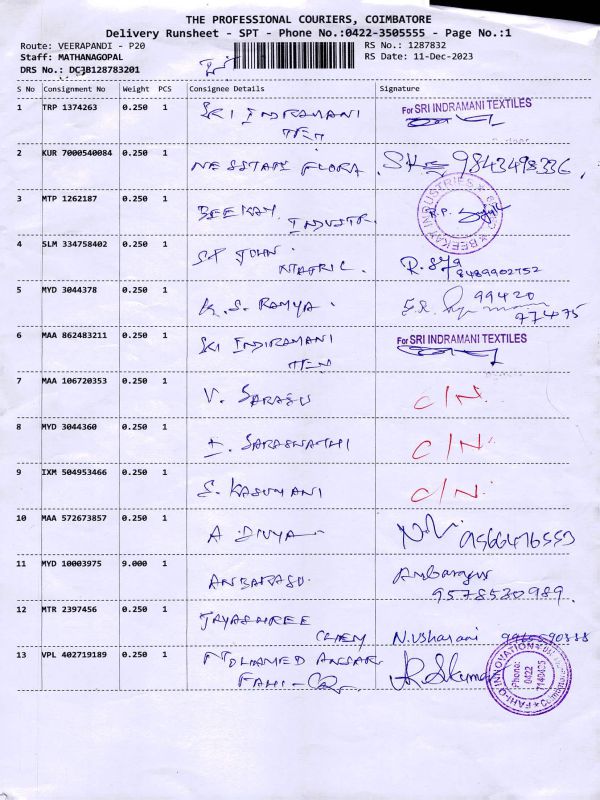 THE PROFESSIONAL COURIERS, COIMBATORE
Delivery Runsheet - SPT - Phone No.:0422-3505555 - Page No.:1
Route: VEERAPANDI - P20 RS No.: 1287832
Staff: MATHANAGOPAL RS Date: 11-Dec-2023
DRS No.: DCJB128783201
S No Consignment No Weight PCS Consignee Details Signature
1 TRP 1374263 0.250 1 SRI INDRAMANI For SRI INDRAMANI TEXTILES
TEX
2 KUR 7000540084 0.250 1 NESSTARI FLORA 9843498336
3 MTP 1262187 0.250 1 BEEKAY INDUSTR. BEEKAY INDUSTRIES
4 SLM 334758402 0.250 1 ST JOHN
MATRIC 8489902752
5 MYD 3044378 0.250 1 K.S. RAMYA 99420
77475
6 MAA 862483211 0.250 1 SRI INDIRAMANI For SRI INDRAMANI TEXTILES
TEX
7 MAA 106720353 0.250 1 V. SARASU C/N.
8 MYD 3044360 0.250 1 I. SARASWATHI C/N.
9 IXM 504953466 0.250 1 S. KASUMANI C/N.
10 MAA 572673857 0.250 1 A DIVYA 9566476553
11 MYD 10003975 9.000 1 ANBARASU. Anbarasu
9578530989.
12 MTR 2397456 0.250 1 JAYASHREE
CHEM N. Usharani
13 VPL 402719189 0.250 1 MOHAMED ANSAR
FAHI-Q FAHI-Q INNOVATION
Phone:
0422
7140405